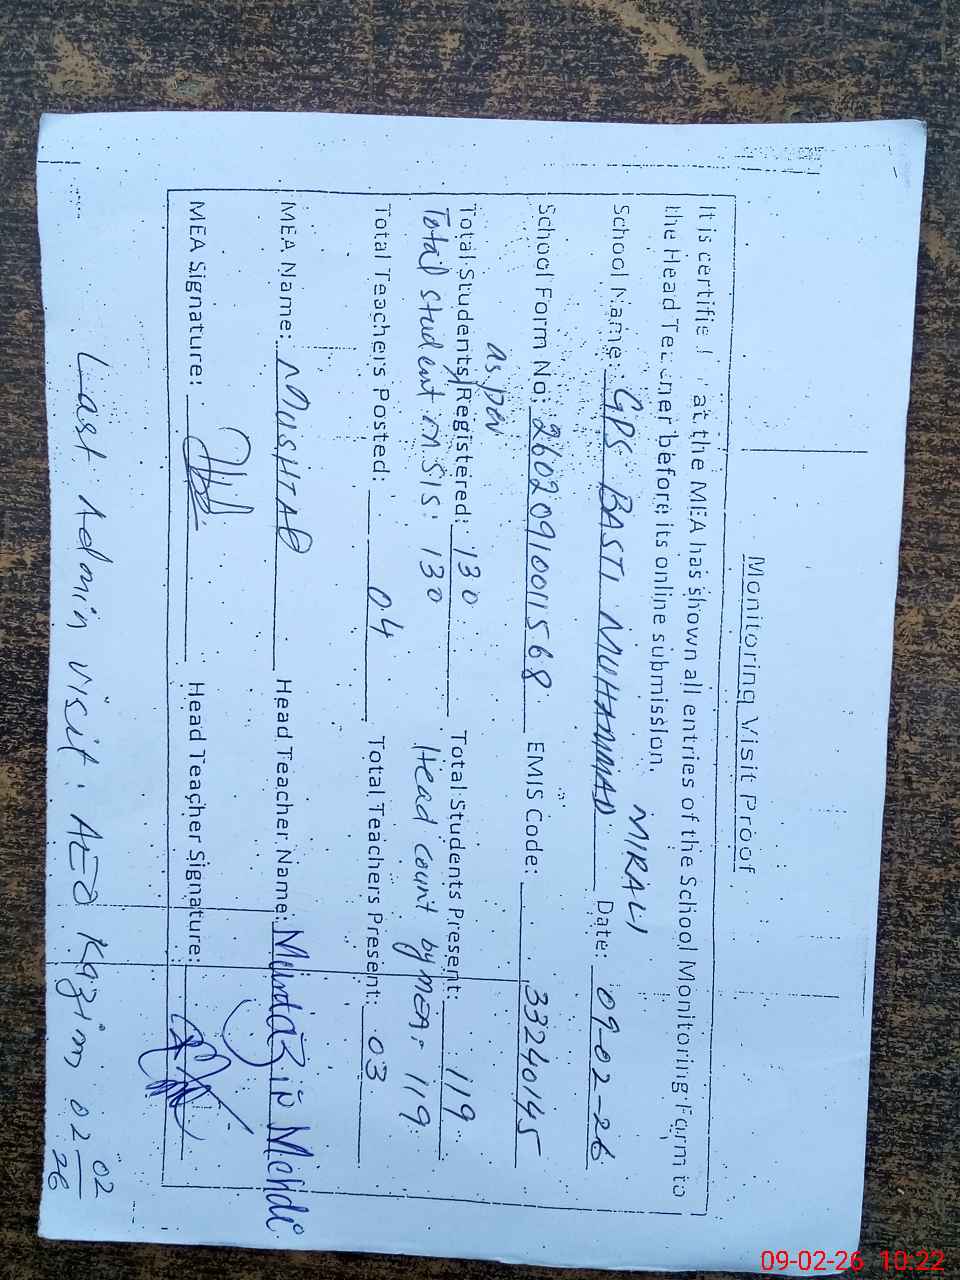 Monitoring Visit Proof
It is certifie at the MEA has shown all entries of the School Monitoring Farm to
the Head Teacher before its online submission.
MIRALI
School Name: GPS BASTI MUHAMMAD Date: 09-02-26
School Form No: 26020910011568 EMIS Code: 33240145
as per
Total Students Registered: 130 Total Students Present: 119
Total student in SIS: 130 Head count by MEA: 119
Total Teachers Posted: 04 Total Teachers Present: 03
MEA Name: MUSHTAQ Head Teacher Name: Mehdi
MEA Signature: Head Teacher Signature:
Last Admin visit: AEO Kazim 02 02 26
09-02-26 10:22